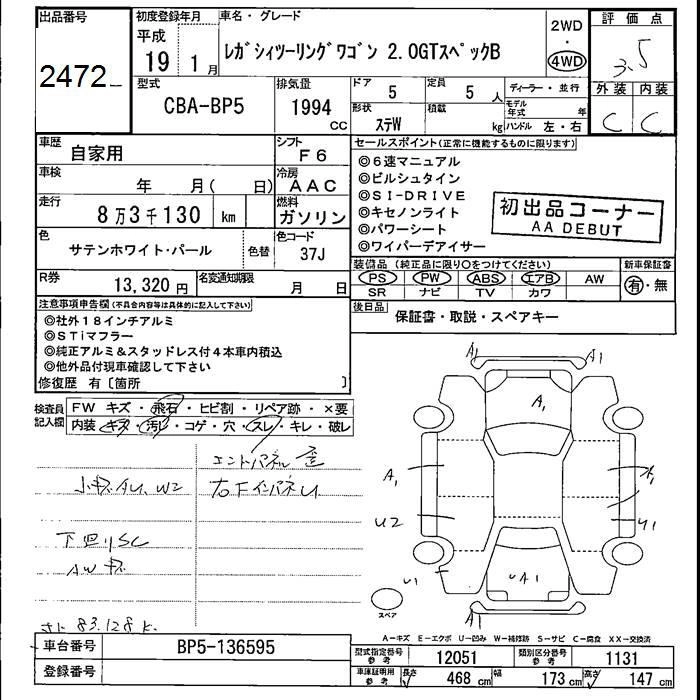 出品番号 初度登録年月 車名・グレード 評価点
2472 平成 19 1月 レガシィツーリングワゴン 2.0GTスペックB 2WD・4WD 3.5
型式 排気量 ドア 定員 ディーラー・並行 外装 内装
CBA-BP5 1994 CC 5 5人 モデル年式 年 C C
形状 ステW 積載 kg ハンドル 左・右
車歴 自家用 シフト F6 セールスポイント(正常に機能するものに限ります)
車検 年 月( 日) 冷房 AAC
走行 8万3千130 km 燃料 ガソリン
色 サテンホワイト・パール 色替 色コード 37J
◎6速マニュアル
◎ビルシュタイン
◎SI-DRIVE
◎キセノンライト
◎パワーシート
◎ワイパーデアイサー
初出品コーナー
AA DEBUT
R券 13,320円 名変通知期限 月 日
装備品(純正品に限り○をつけてください) 新車保証書
PS PW ABS エアB AW 有・無
SR ナビ TV カワ
後日品 保証書・取説・スペアキー
注意事項申告欄(不具合内容等は具体的に記入して下さい)
◎社外18インチアルミ
◎STiマフラー
◎純正アルミ&スタッドレス付4本車内積込
◎他外品付現車確認して下さい
修復歴 有〔箇所 〕
検査員記入欄 FW キズ・飛石・ヒビ割・リペア跡・×要
内装 キズ・汚レ・コゲ・穴・スレ・キレ・破レ
エンドパネル 歪
小キズAU、W2 右下インパネU
下廻りSC
AWキズ
さト 83.128 k
A1 A1
A1
A1
U2 U1
U1 UA1
A1
スペア
A-キズ E-エクボ U-凹み W-補修跡 S-サビ C-腐食 XX-交換済
車台番号 BP5-136595
登録番号
型式指定番号 参考 12051 類別区分番号 参考 1131
車庫証明用 参考 長さ 468 cm 幅 173 cm 高さ 147 cm